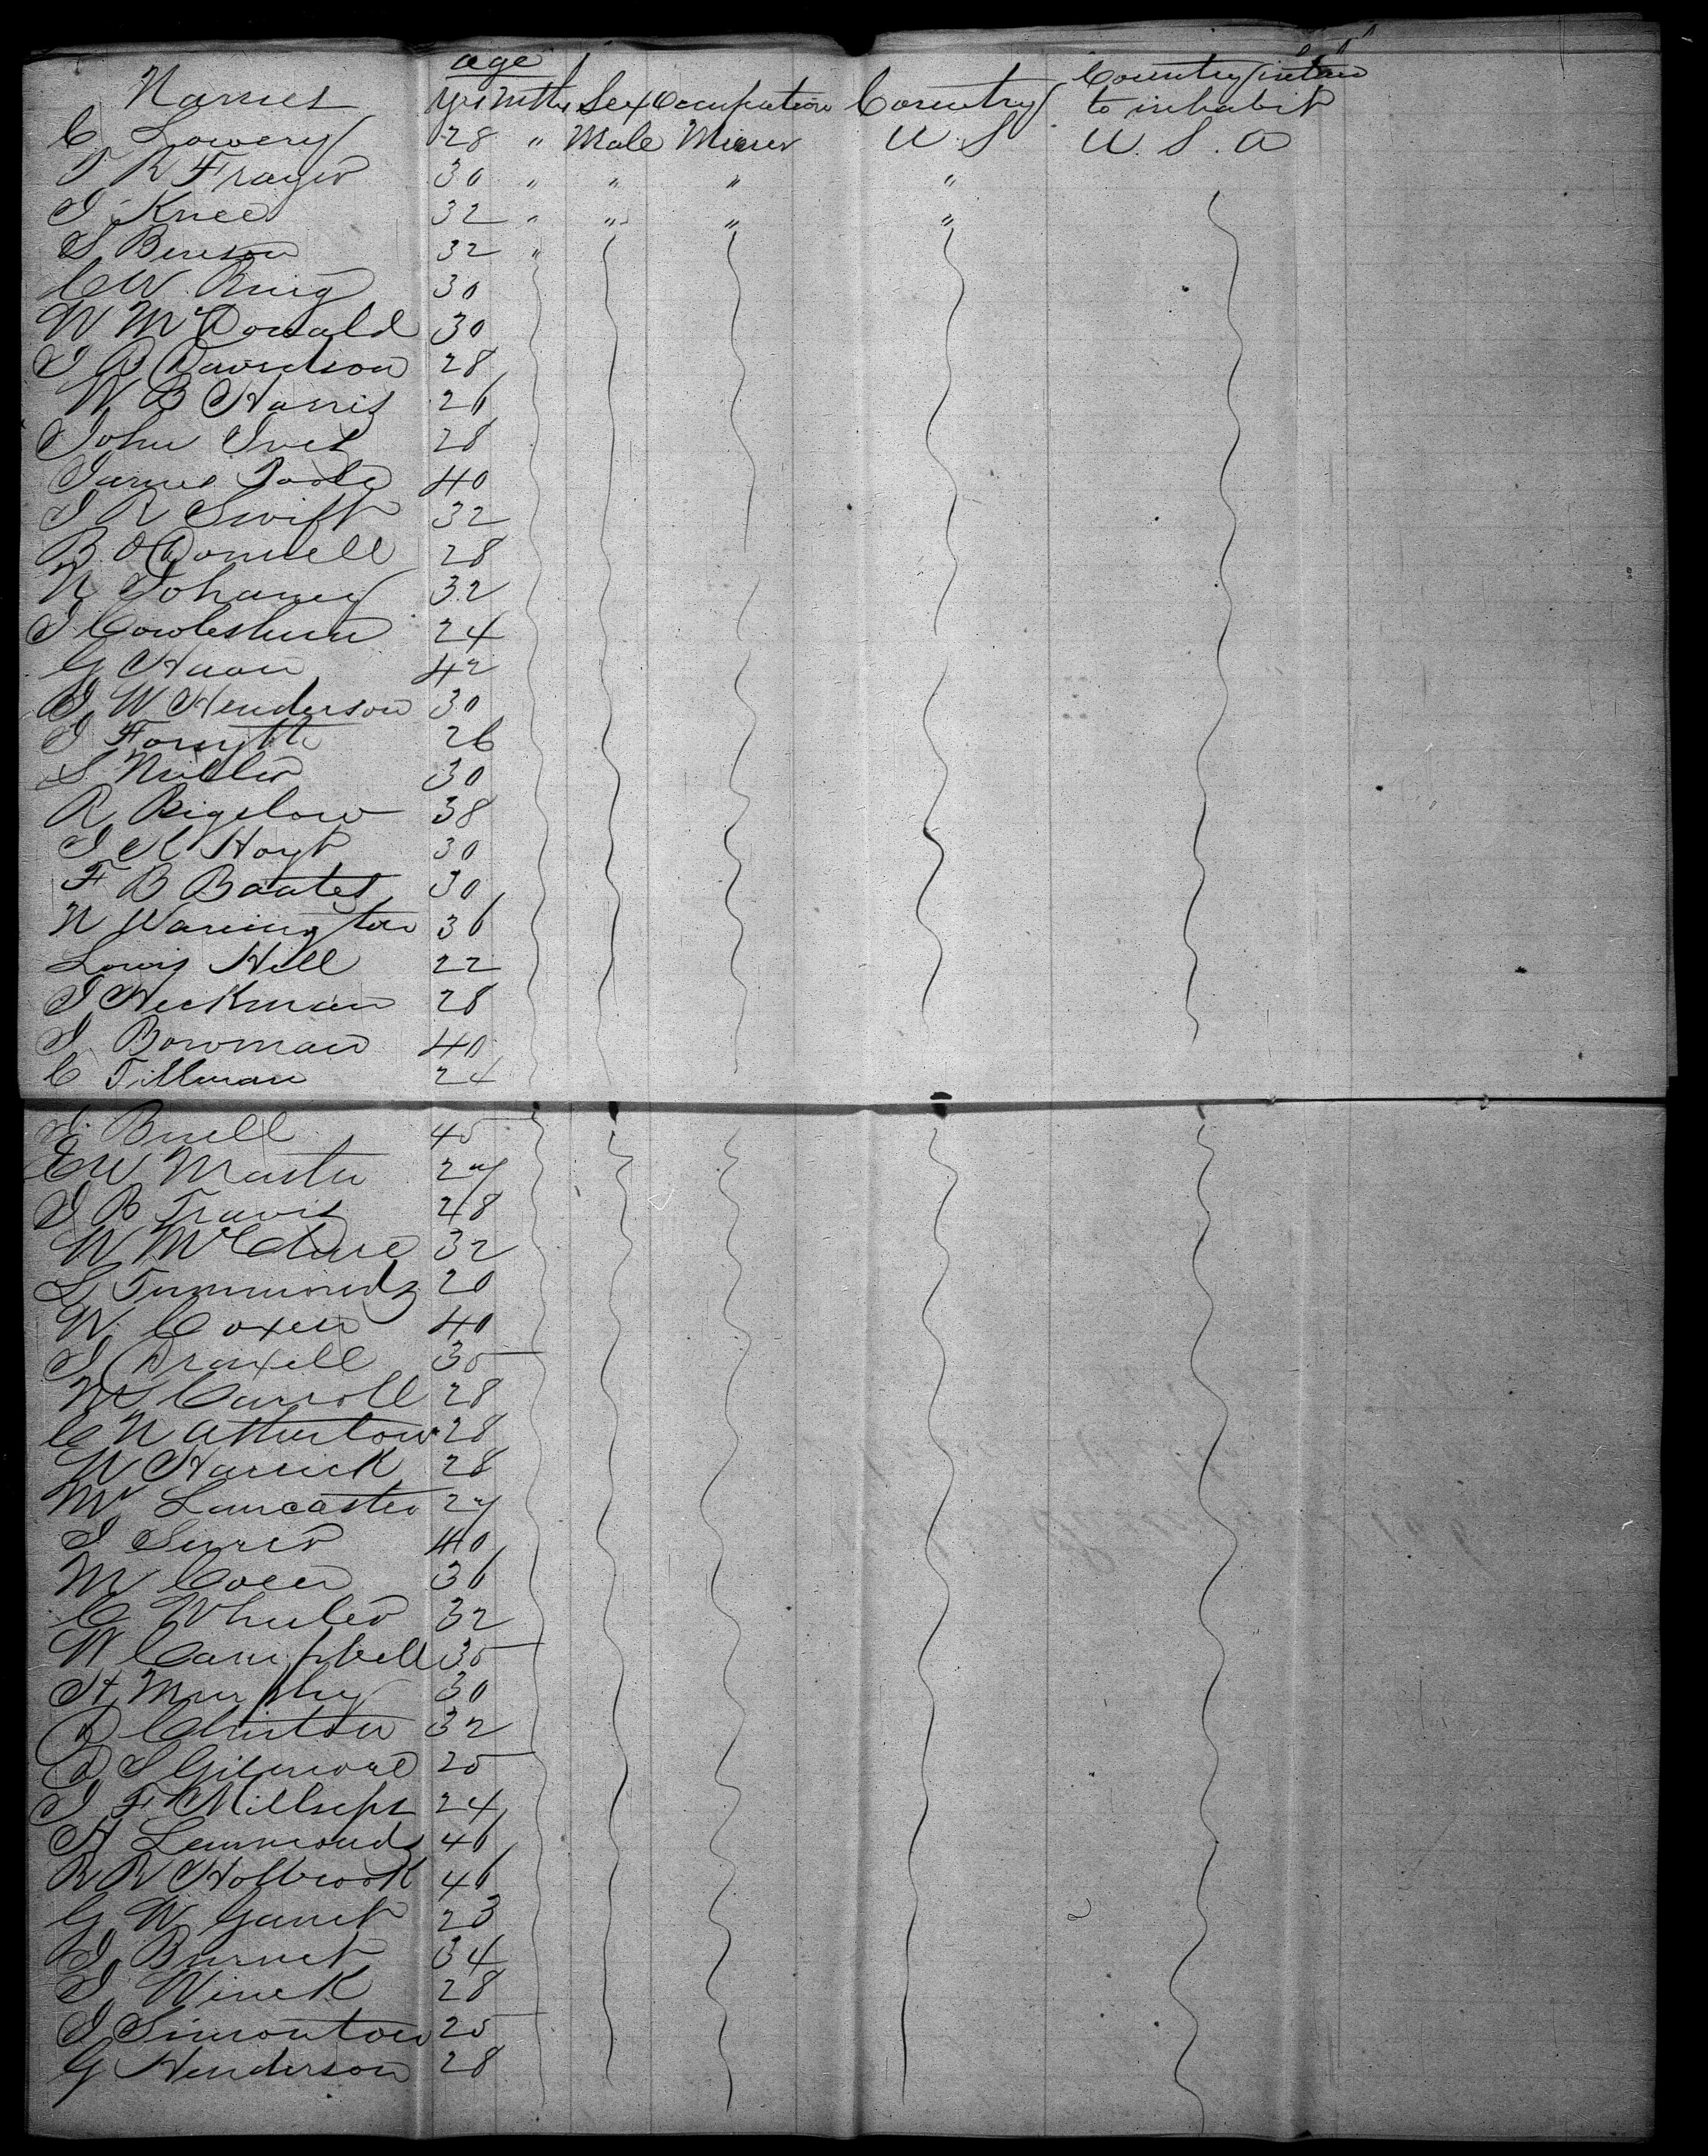 age
Country inten
Names yrs mths Sex Occupation Country to inhabit
C Lowery 28 " Male Miner U S U. S. A
T R Frazer 30 " " " "
J Knee 32 " " " "
S Benson 32 "
C W Ring 30
W McDonald 30
J B Davidson 28
W B Harris 26
John Ives 28
James Poole 40
J R Swift 32
B O Donnell 28
N Dohaney 32
J 24
G Haon 42
J W Henderson 30
J Forsyth 26
S Miller 30
R Bigelow 38
J C Hoyt 30
F B Baates 30
N Warrington 36
Lewis Hill 22
J Heckman 28
J Bowman 40
C Tillman 24
Buell 45
C W Master 27
J B Travis 28
W McClure 32
L Timmonds 20
W Coxen 40
J Draxell 35
Carroll 28
C N Atherton 28
W Harrick 28
Lancaster 27
J 40
M Coen 36
C Wheeler 32
W Campbell 35
H Murphy 30
D Clinton 32
D S Gilmore 25
J F Millseps 24
H Lemmonds 46
R R Holbrook 46
G W Garret 23
J Burnet 34
J Winek 28
J Simonton 25
G Henderson 28